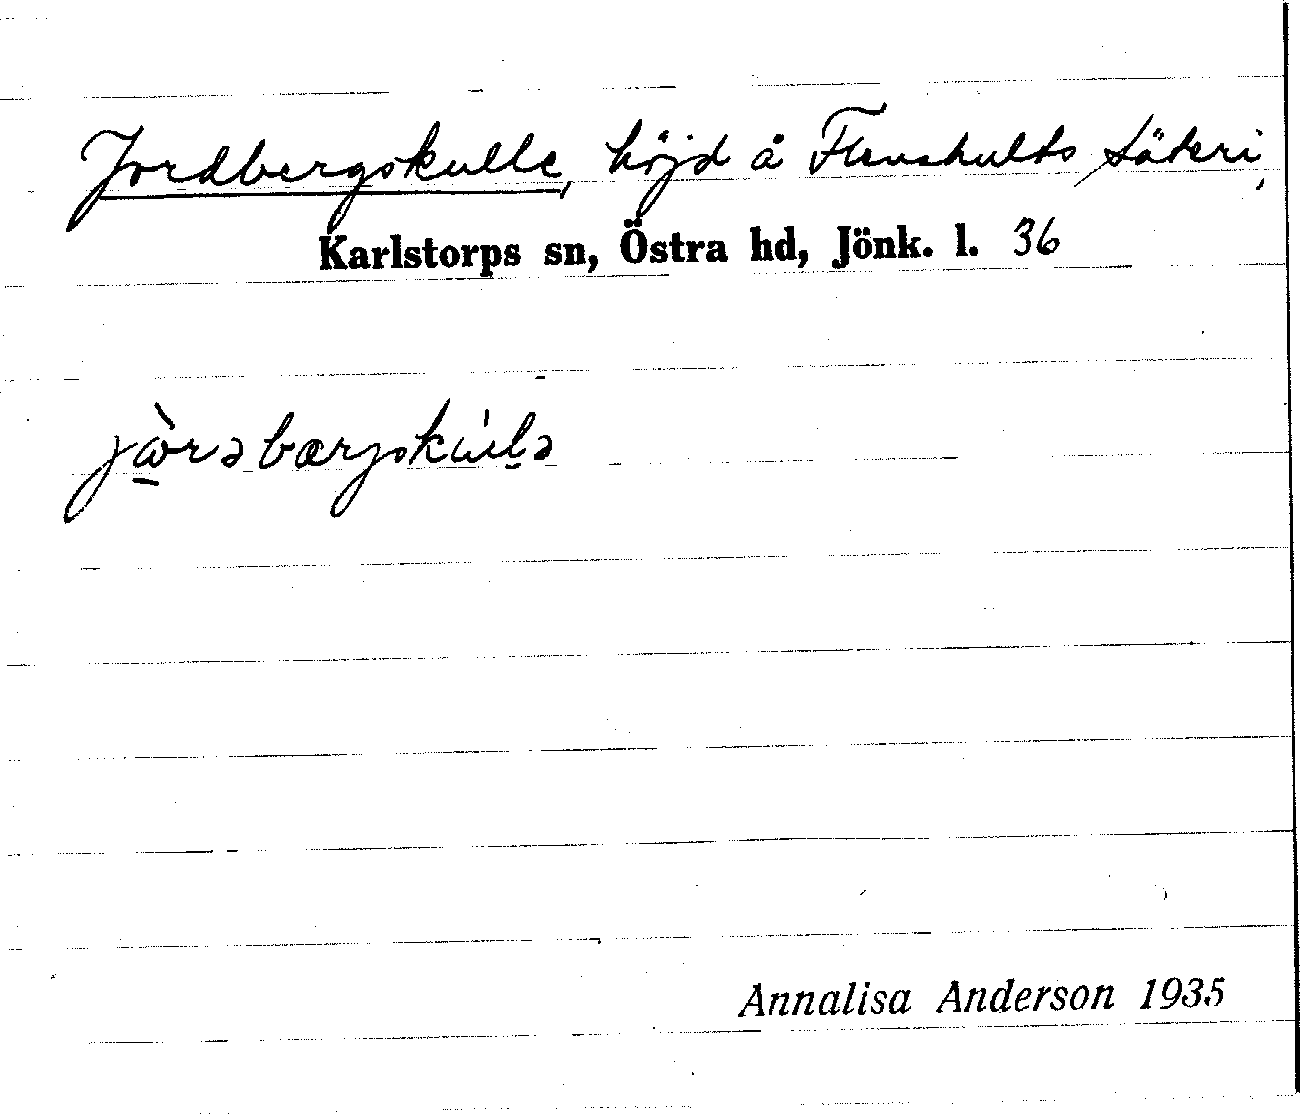 Jordbergskulle, höjd å Flenshults säteri,
Karlstorps sn, Östra hd, Jönk. l. 36
Annalisa Anderson 1935